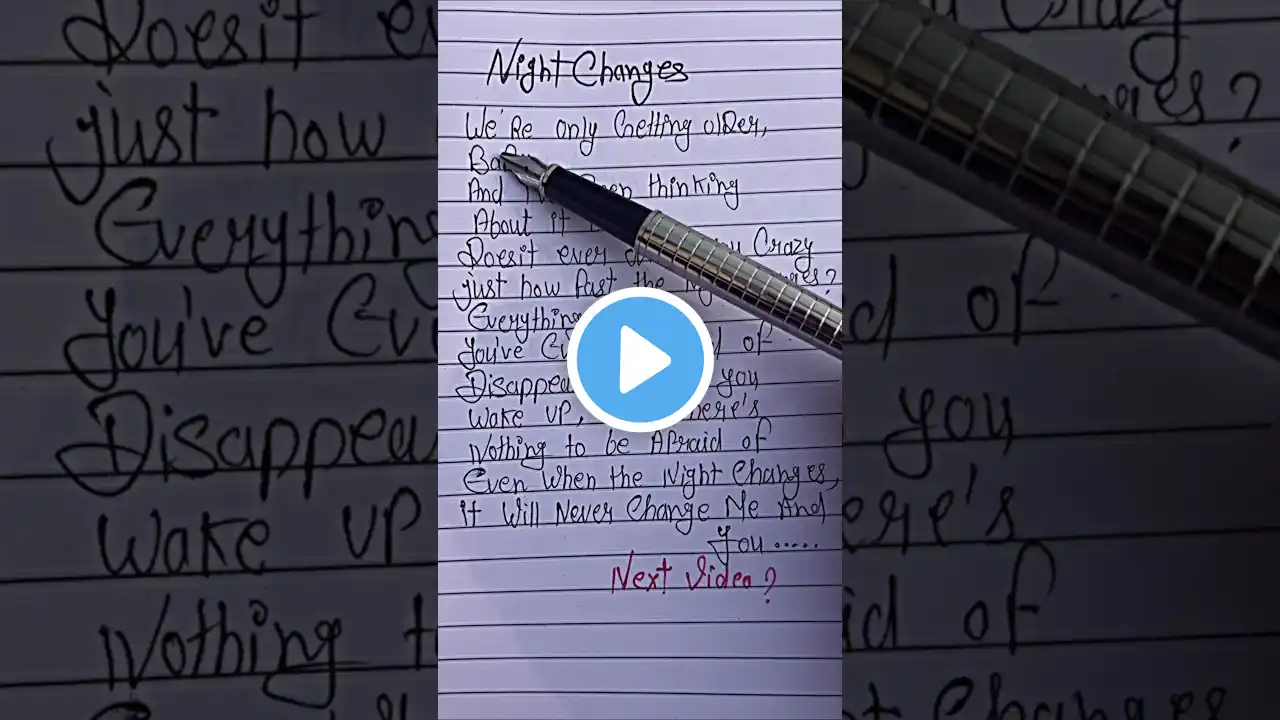 Night Changes
We're only Getting older,
And thinking
About it
Doesit ever Crazy
just how fast the
Everything
You've of
you
Wake up,
Nothing to be Afraid of
Even When the Night Changes,
it Will Never Change Me And
you.....
Next Video?